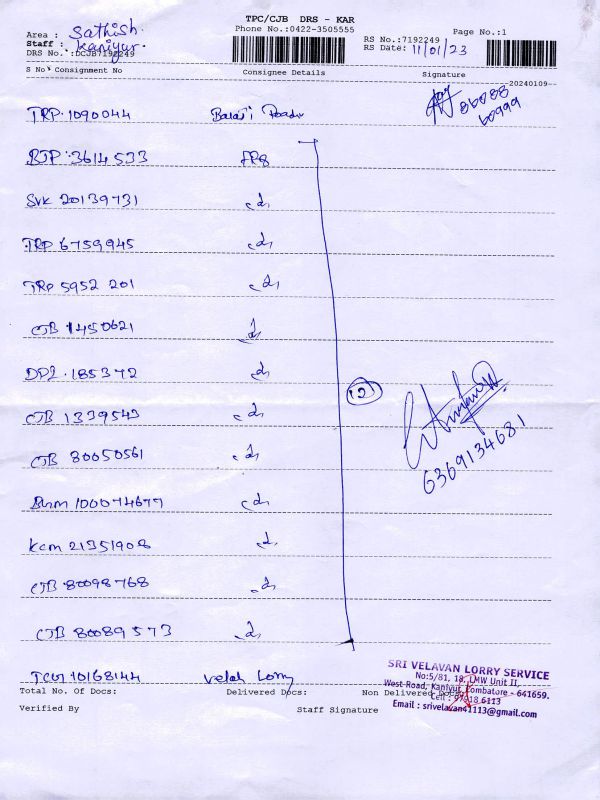 TPC/CJB DRS - KAR
Phone No.:0422-3505555
Page No.:1
Area : Sathish
Staff : Kaniyur.
DRS No.:DCJB7192249
RS No.:7192249
RS Date: 11/01/23
S No Consignment No Consignee Details Signature
20240109
TRP. 1090044 Balaji
86088
60999
BTP. 3614533
SVK 20139731
TRP 6759945
TRP 5952 201
CJB 1450621
DPI. 185372
CJB 1339543
CJB 80050561
6369134681
100074677
KCM 21351908
CJB 80098768
CJB 80089573
10168144 Velah Lorry
SRI VELAVAN LORRY SERVICE
No:5/81, 18, LMW Unit II,
West Road, Kaniyur, Coimbatore - 641659.
Email : srivelavan41113@gmail.com
Total No. Of Docs: Delivered Docs: Non Delivered Docs:
Verified By Staff Signature